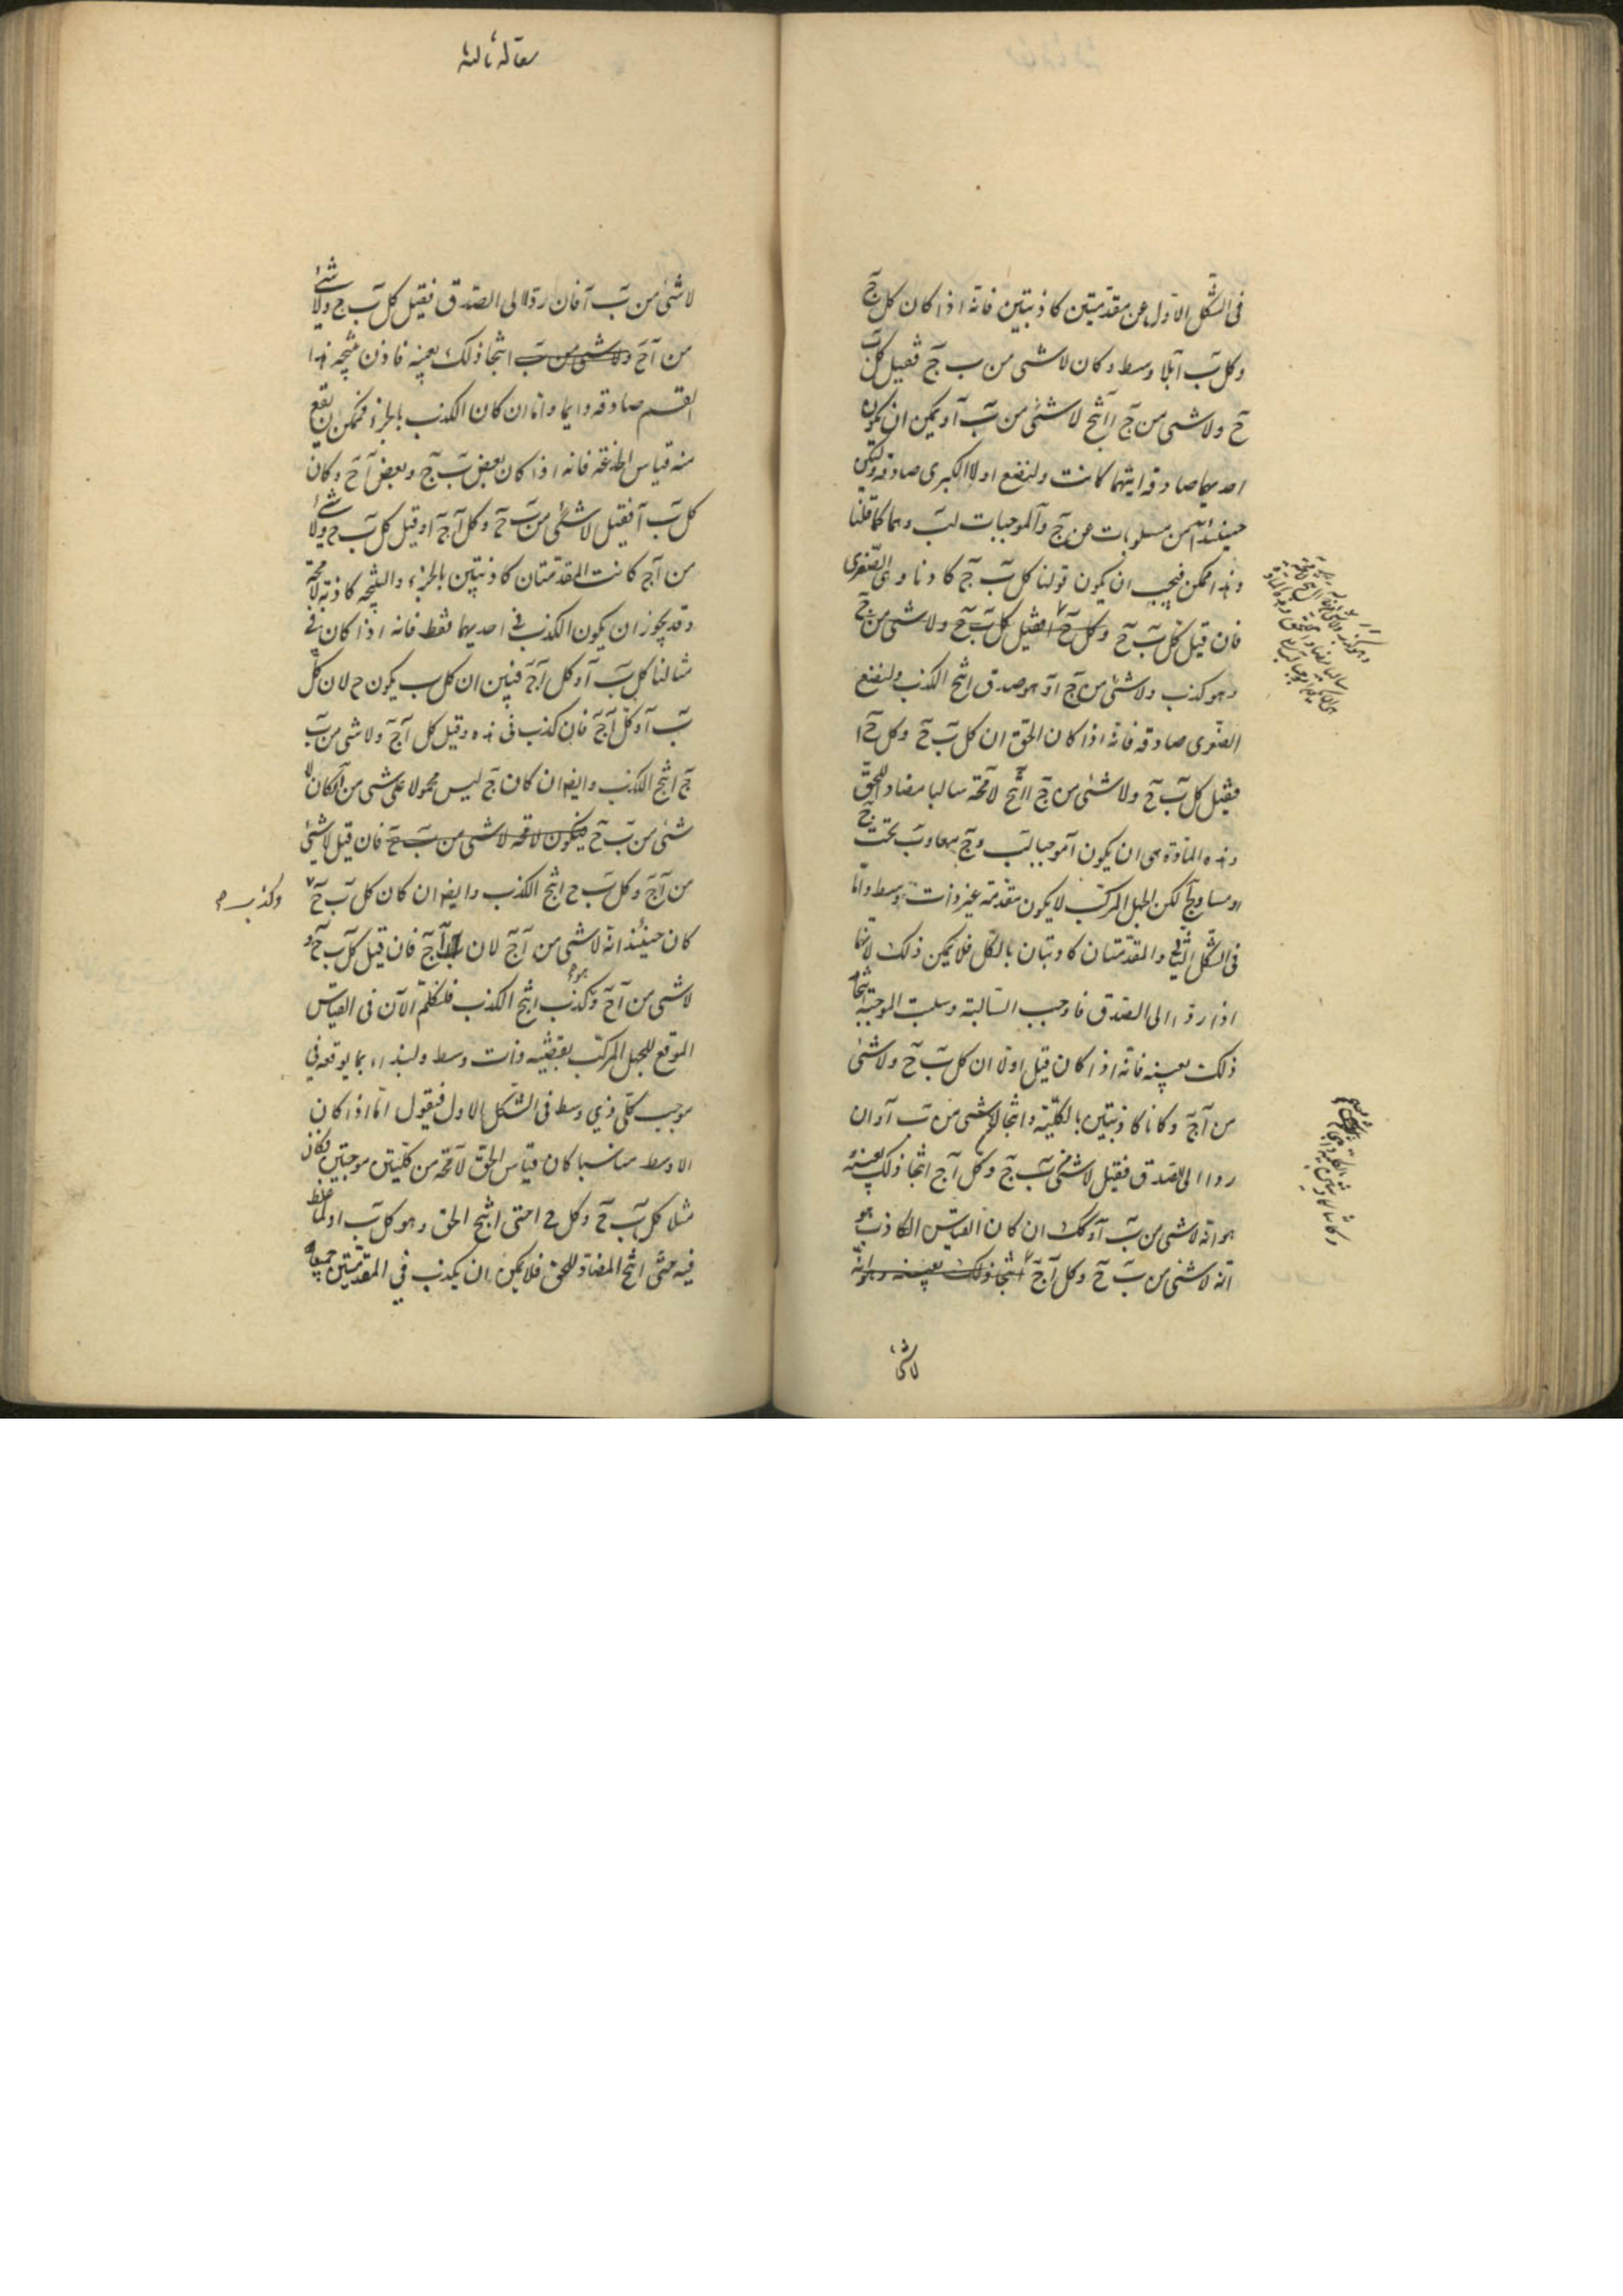 فى الشكل الاول عن مقدمتين كاذبتين فانه اذا كان كل ج
وكل ب آ بلا وسط وكان لا شئ من ب ج فقيل كل ب
ج ولا شئ من ج آ انتج لا شئ من ب آ ويمكن ان يكون
احديهما صادقة ايتهما كانت ولنضع اولا الكبرى صادقة وليكن
حينئذ من مسلوبات عن ج وآ لموجبات لب وهما كما قلنا
وهذا ممكن فيجب ان يكون قولنا كل ب ج كاذبا وهى الصغرى
فان قيل كل ب ج وكل ج آ فقيل كل ب ج ولا شئ من ج
وهو كذب ولا شئ من ج آ وهو صدق انتج الكذب ولنضع
الصغرى صادقة فانه اذا كان الحق ان كل ب ج وكل ج آ
فقيل كل ب ج ولا شئ من ج آ انتج لا محة سالبا مضادا للحق
وهذه المادة هى ان يكون آ موجبا لب وج معا وب تحت ج
او مساويا لكن الجهل المركب لا يكون مقدمته غير ذات وسط واما
فى الشكل الثانى والمقدمتان كاذبتان بالكل فلا يمكن ذلك لانهما
اذا ردا الى الصدق فاوجب السالبة وسلبت الموجبة انتجا
ذلك بعينه فانه اذا كان قيل اولا ان كل ب ج ولا شئ
من آ ج وكانا كاذبتين بالكلية وانتجا لا شئ من ب آ وان
ردا الى الصدق فقيل لا شئ من ب ج وكل آ ج انتجا ذلك بعينه
هو انه لا شئ من ب آ وكك ان كان القياس الكاذب هو
انه لا شئ من ب ج وكل آ ج انتجا ذلك بعينه وهو انه
لا شئ
مقالة ثالثة
لا شئ من ب آ فان ردا الى الصدق فقيل كل ب ج ولا شئ
من آ ج ولا شئ من ب انتجا ذلك بعينه فاذن نتيجة هذا
القسم صادقة دايما واما ان كان الكذب بالجزء فممكن ان يقع
منه قياس الخدعة فانه اذا كان بعض ب ج وبعض آ ج وكان
كل ب آ فقيل لا شئ من ب ج وكل آ ج او قيل كل ب ج ولا شئ
من آ ج كانت المقدمتان كاذبتين بالجزء والنتيجة كاذبة لا محة
وقد يجوز ان يكون الكذب فى احديهما فقط فانه اذا كان فى
مثالنا كل ب آ وكل آ ج فبين ان كل ب يكون ج لان كل
ب آ وكل آ ج فان كذب فى هذه وقيل كل آ ج ولا شئ من ب
ج انتج الكذب وايض ان كان ج ليس محمولا على شئ من آ كان لا
شئ من ب ج فيكون لا محة لا شئ من ب ج فان قيل لا شئ
من آ ج وكل ب ج انتج الكذب وايض ان كان كل ب ج
وكذب
كان حينئذ انه لا شئ من آ ج لان ب آ آ ج فان قيل كل ب ج و
لا شئ من آ ج وكذب هو انتج الكذب فلنتكلم الآن فى القياس
الموقع للجهل المركب بقضية ذات وسط ولنبدا بما يوقعه فى
موجب كلى ذى وسط فى الشكل الاول فيقول اما اذا كان
الاوسط مناسبا كان قياس الحق لا محة من كليتين موجبتين فكان
مثلا كل ب ج وكل ج آ حتى انتج الحق وهو كل ب آ ولما غلط
فيه حتى انتج المضاد للحق فلا يمكن ان يكذب فى المقدمتين جميعا